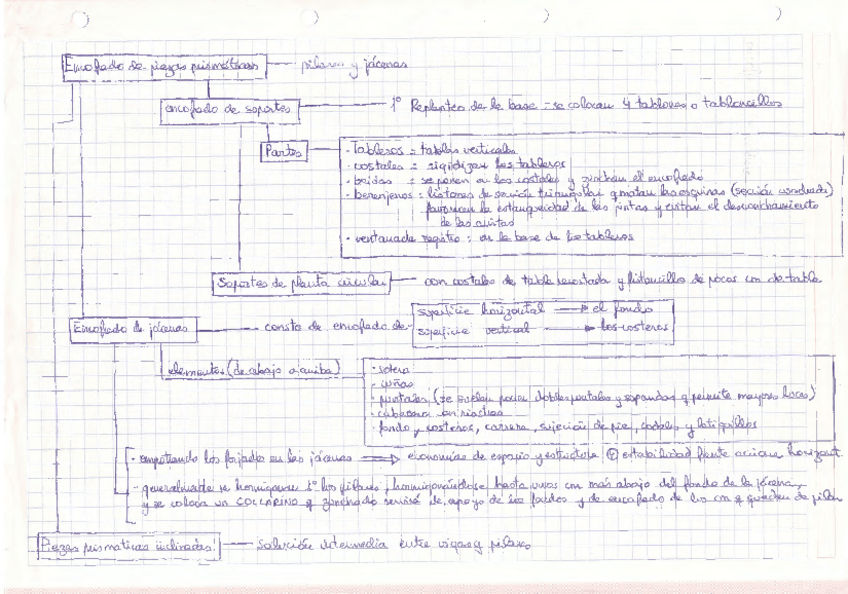 Encofrado de piezas prismáticas — pilares y jácenas
encofrado de soportes — 1º Replanteo de la base - se colocan 4 tablones o tabloncillos
Partes
· Tableros = tablas verticales
· costales = rigidizan los tableros
· bridas = se ponen en los costales y zunchan el encofrado
· berenjenos = listones de sección triangular q matan las esquinas (sección cuadrada)
favorecen la estanqueidad de las juntas y evitan el desconchamiento
de las aristas
· ventana de registro : en la base de los tableros
Soportes de planta circular — con costales de tabla recortada y listoncillos de pocos cm de tabla
Encofrado de jácenas — consta de encofrado de
superficie horizontal → el fondo
superficie vertical → los costeros
elementos (de abajo a arriba)
· solera
· cuñas
· puntales (se suelen poner dobles puntales y sopandas q permite mayores luces)
· cabecero
· fondo y costeros, carrera, sujeción de pie, codales y latiguillos
· empotrando los forjados en las jácenas ⇒ economías de espacio y estructura ⊕ estabilidad frente accion horizont.
- generalmente se hormigonan 1º los pilares, hormigonándose hasta unos cm más abajo del fondo de la jácena,
y se coloca un COLLARINO q zunchado servirá de apoyo de los fondos y de encofrado de los cm q quedan de pilar
Piezas prismáticas inclinadas — Solución intermedia entre vigas y pilares